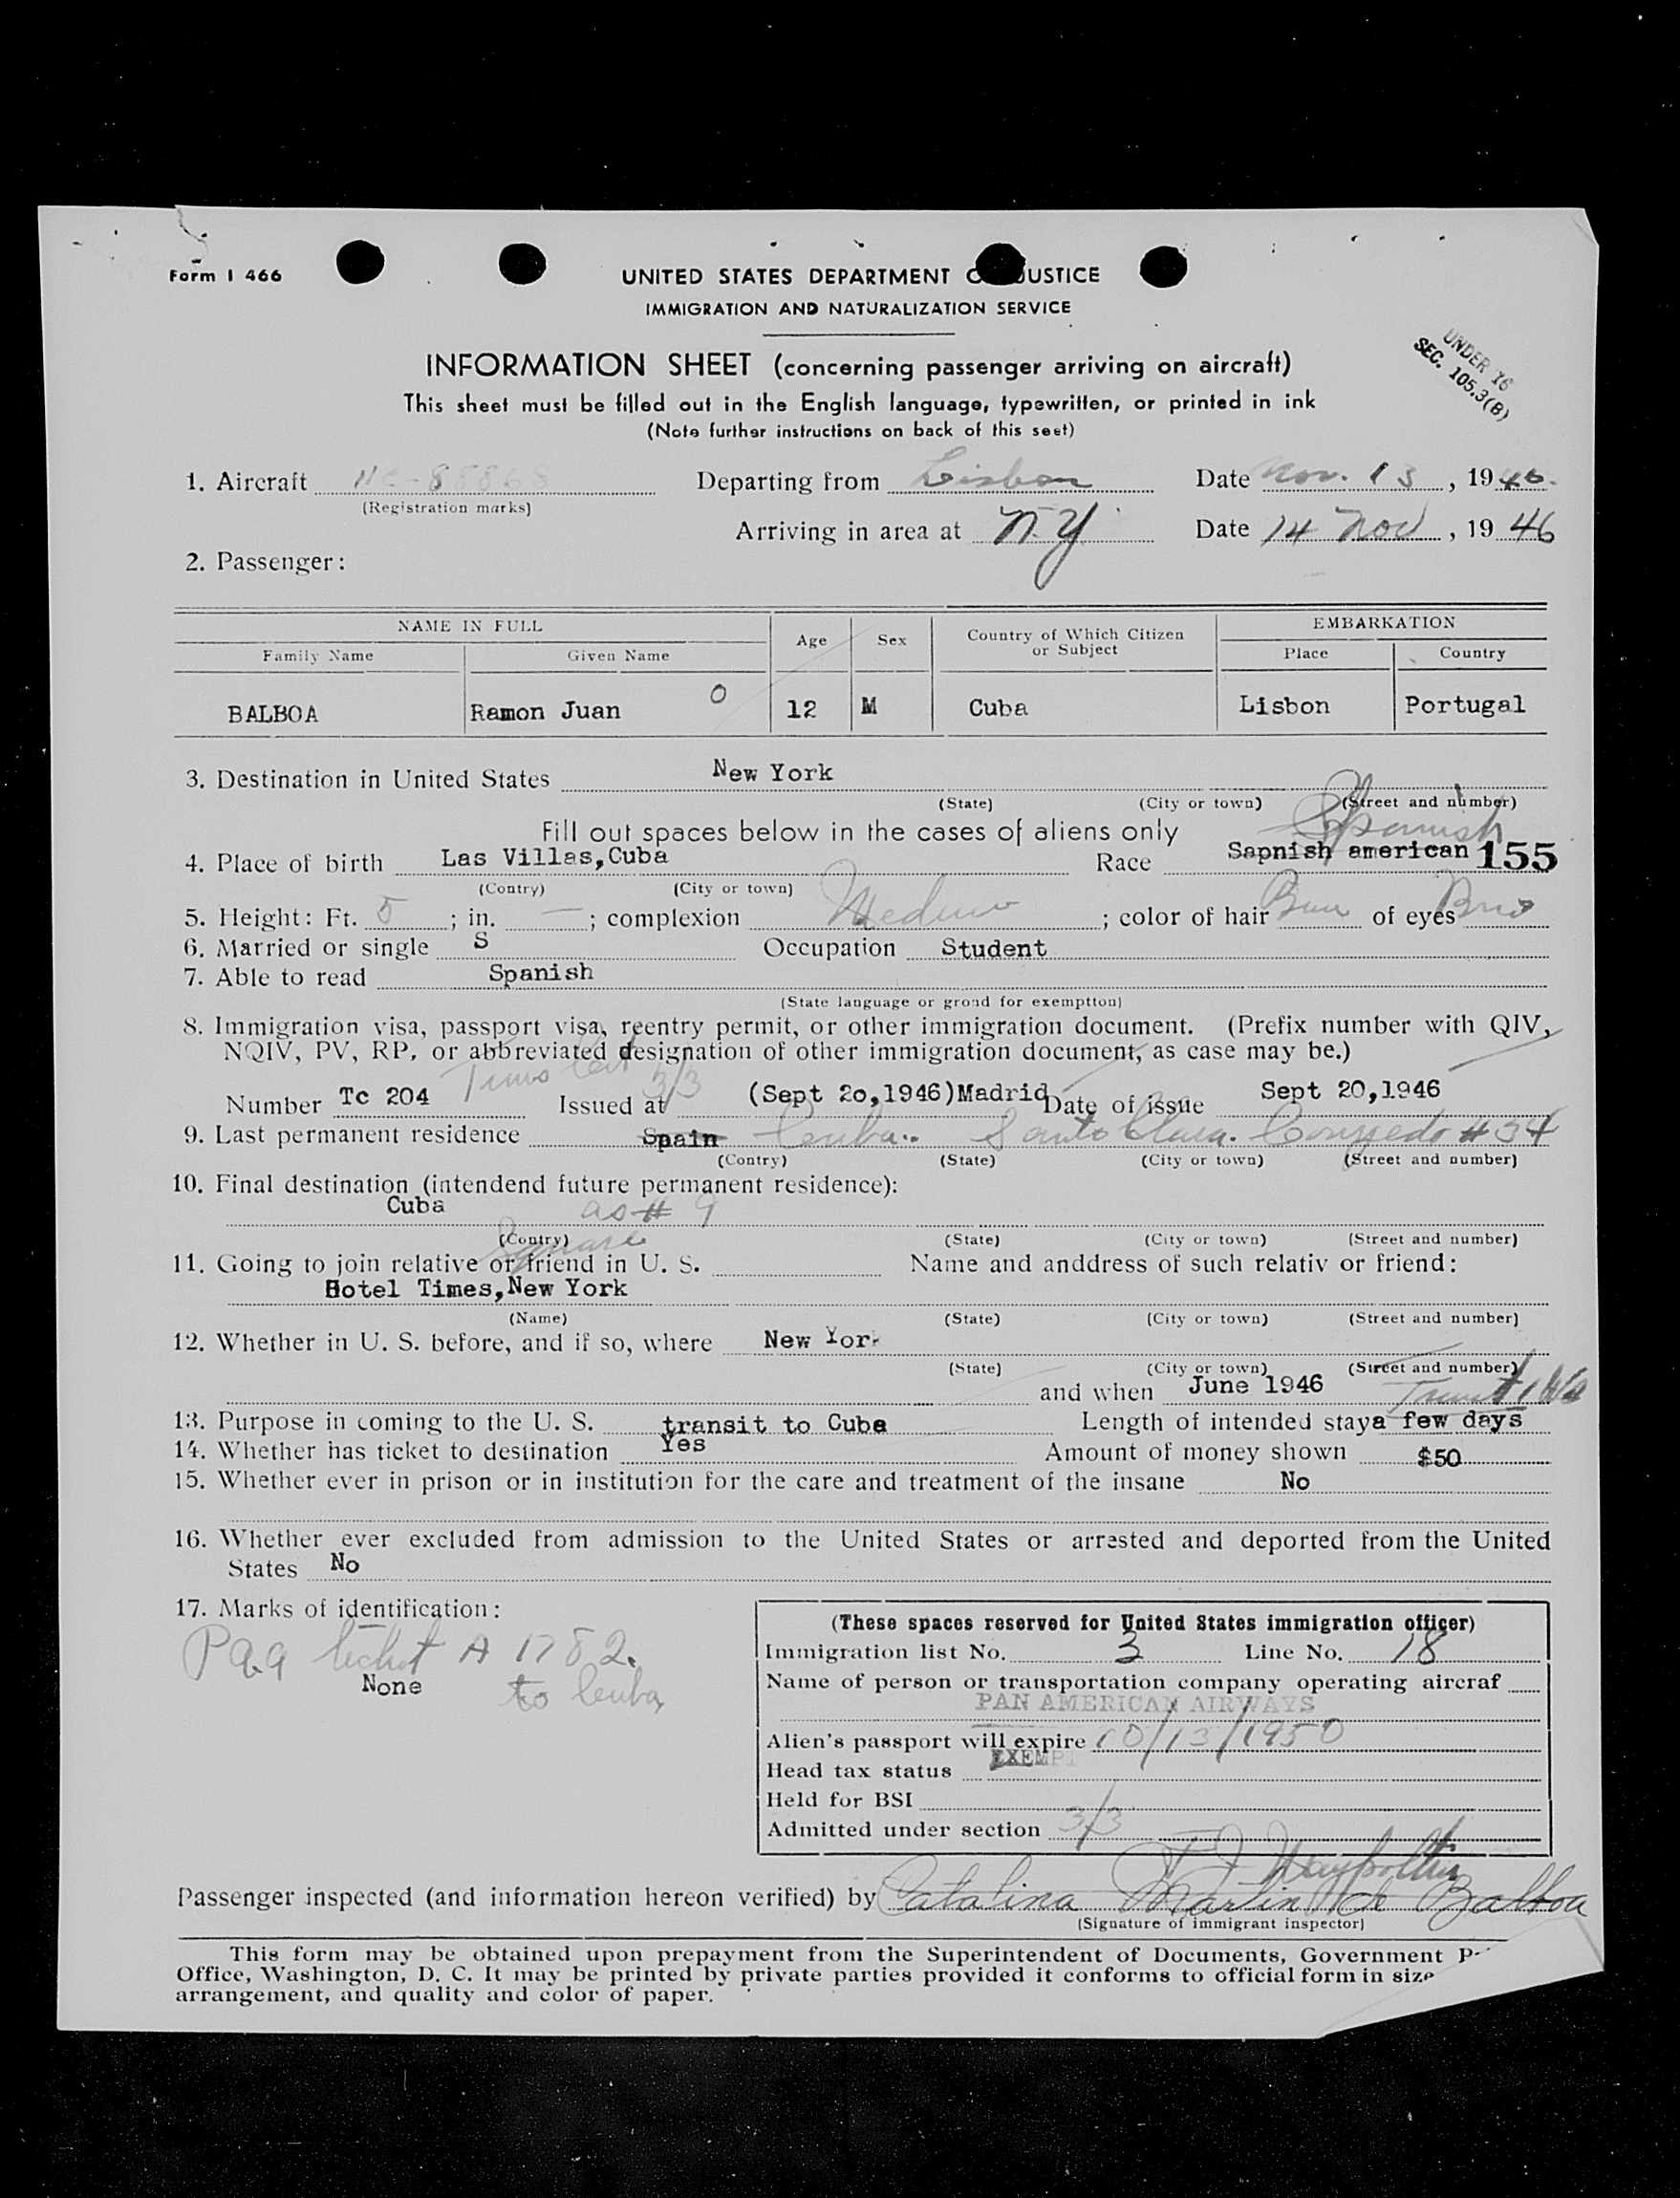 Form I 466
UNITED STATES DEPARTMENT O JUSTICE
IMMIGRATION AND NATURALIZATION SERVICE
INFORMATION SHEET (concerning passenger arriving on aircraft)
UNDER 16
SEC. 105.3(B)
This sheet must be filled out in the English language, typewritten, or printed in ink
(Note further instructions on back of this seet)
1. Aircraft NC-88868 Departing from Lisbon Date Nov. 13, 1946.
(Registration marks)
Arriving in area at N.Y. Date 14 Nov, 1946
2. Passenger:
NAME IN FULL Age Sex Country of Which Citizen or Subject EMBARKATION
Family Name Given Name Place Country
BALBOA Ramon Juan 0 12 M Cuba Lisbon Portugal
3. Destination in United States New York
(State) (City or town) (Street and number)
Fill out spaces below in the cases of aliens only Spanish
4. Place of birth Las Villas,Cuba Race Sapnish american 155
(Contry) (City or town)
5. Height: Ft. 5; in. —; complexion Medium; color of hair Brn of eyes Brn
6. Married or single S Occupation Student
7. Able to read Spanish
(State language or grond for exemption)
8. Immigration visa, passport visa, reentry permit, or other immigration document. (Prefix number with QIV,
NQIV, PV, RP, or abbreviated designation of other immigration document, as case may be.)
Trans Cert 3/3
Number Tc 204 Issued at (Sept 2o,1946)Madrid Date of issue Sept 20,1946
9. Last permanent residence Spain Cuba. Santa Clara. # 34
(Contry) (State) (City or town) (Street and number)
10. Final destination (intendend future permanent residence):
Cuba as # 9
(Contry) (State) (City or town) (Street and number)
Square
11. Going to join relative or friend in U. S. Name and anddress of such relativ or friend:
Hotel Times,New York
(Name) (State) (City or town) (Street and number)
12. Whether in U. S. before, and if so, where New York
(State) (City or town) (Street and number)
and when June 1946 Transit
13. Purpose in coming to the U. S. transit to Cuba Length of intended stay a few days
14. Whether has ticket to destination Yes Amount of money shown $50
15. Whether ever in prison or in institution for the care and treatment of the insane No
16. Whether ever excluded from admission to the United States or arrested and deported from the United
States No
17. Marks of identification:
Paa ticket A 1782.
None to Cuba
(These spaces reserved for United States immigration officer)
Immigration list No. 3 Line No. 18
Name of person or transportation company operating aircraf
PAN AMERICAN AIRWAYS
Alien's passport will expire 10/13/1950
Head tax status EXEMPT
Held for BSI
Admitted under section 3/3
Passenger inspected (and information hereon verified) by Catalina Martin de Balboa
(Signature of immigrant inspector)
This form may be obtained upon prepayment from the Superintendent of Documents, Government
Office, Washington, D. C. It may be printed by private parties provided it conforms to official form in size
arrangement, and quality and color of paper.